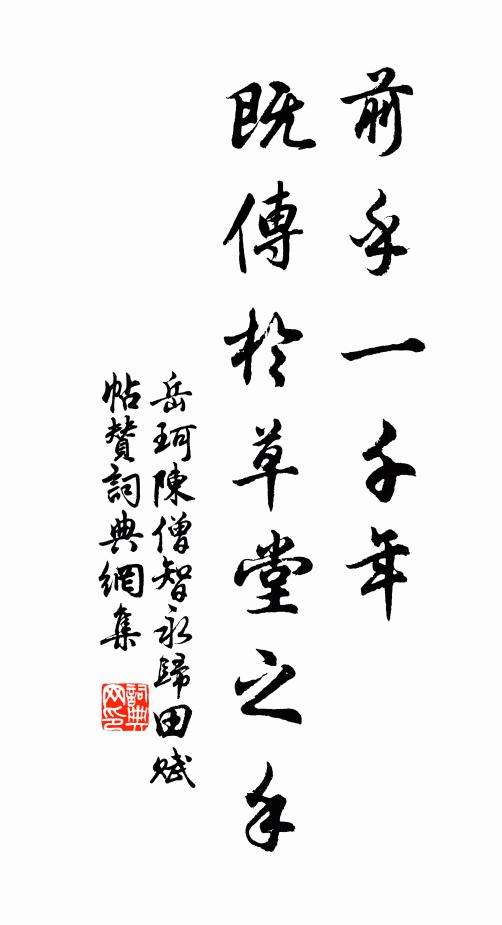 前乎一千年
既傳於草堂之手
岳珂陳僧智永歸田賦
帖贊詞典網集
詞典网印